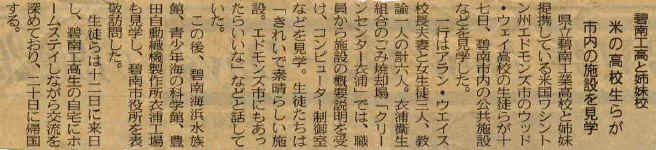 碧南工高と姉妹校
米の高校生らが
市内の施設を見学
県立碧南工業高校と姉妹
提携している米国ワシント
ン州エドモンズ市のウッド
・ウェイ高校の生徒らが十
七日、碧南市内の公共施設
などを見学した。
一行はアラン・ウエイス
校長夫妻と女生徒三人、教
諭一人の計六人。衣浦衛生
組合のごみ焼却場「クリー
ンセンター衣浦」では、職
員から施設の概要説明を受
け、コンピューター制御室
などを見学。生徒たちは
「きれいで素晴らしい施
設。エドモンズ市にもあっ
たらいいな」などと話して
いた。
この後、碧南海浜水族
館、青少年海の科学館、豊
田自動織機製作所衣浦工場
も見学し、碧南市役所を表
敬訪問した。
生徒らは十二日に来日
し、碧南工高生の自宅にホ
ームステイしながら交流を
深めており、二十日に帰国
する。